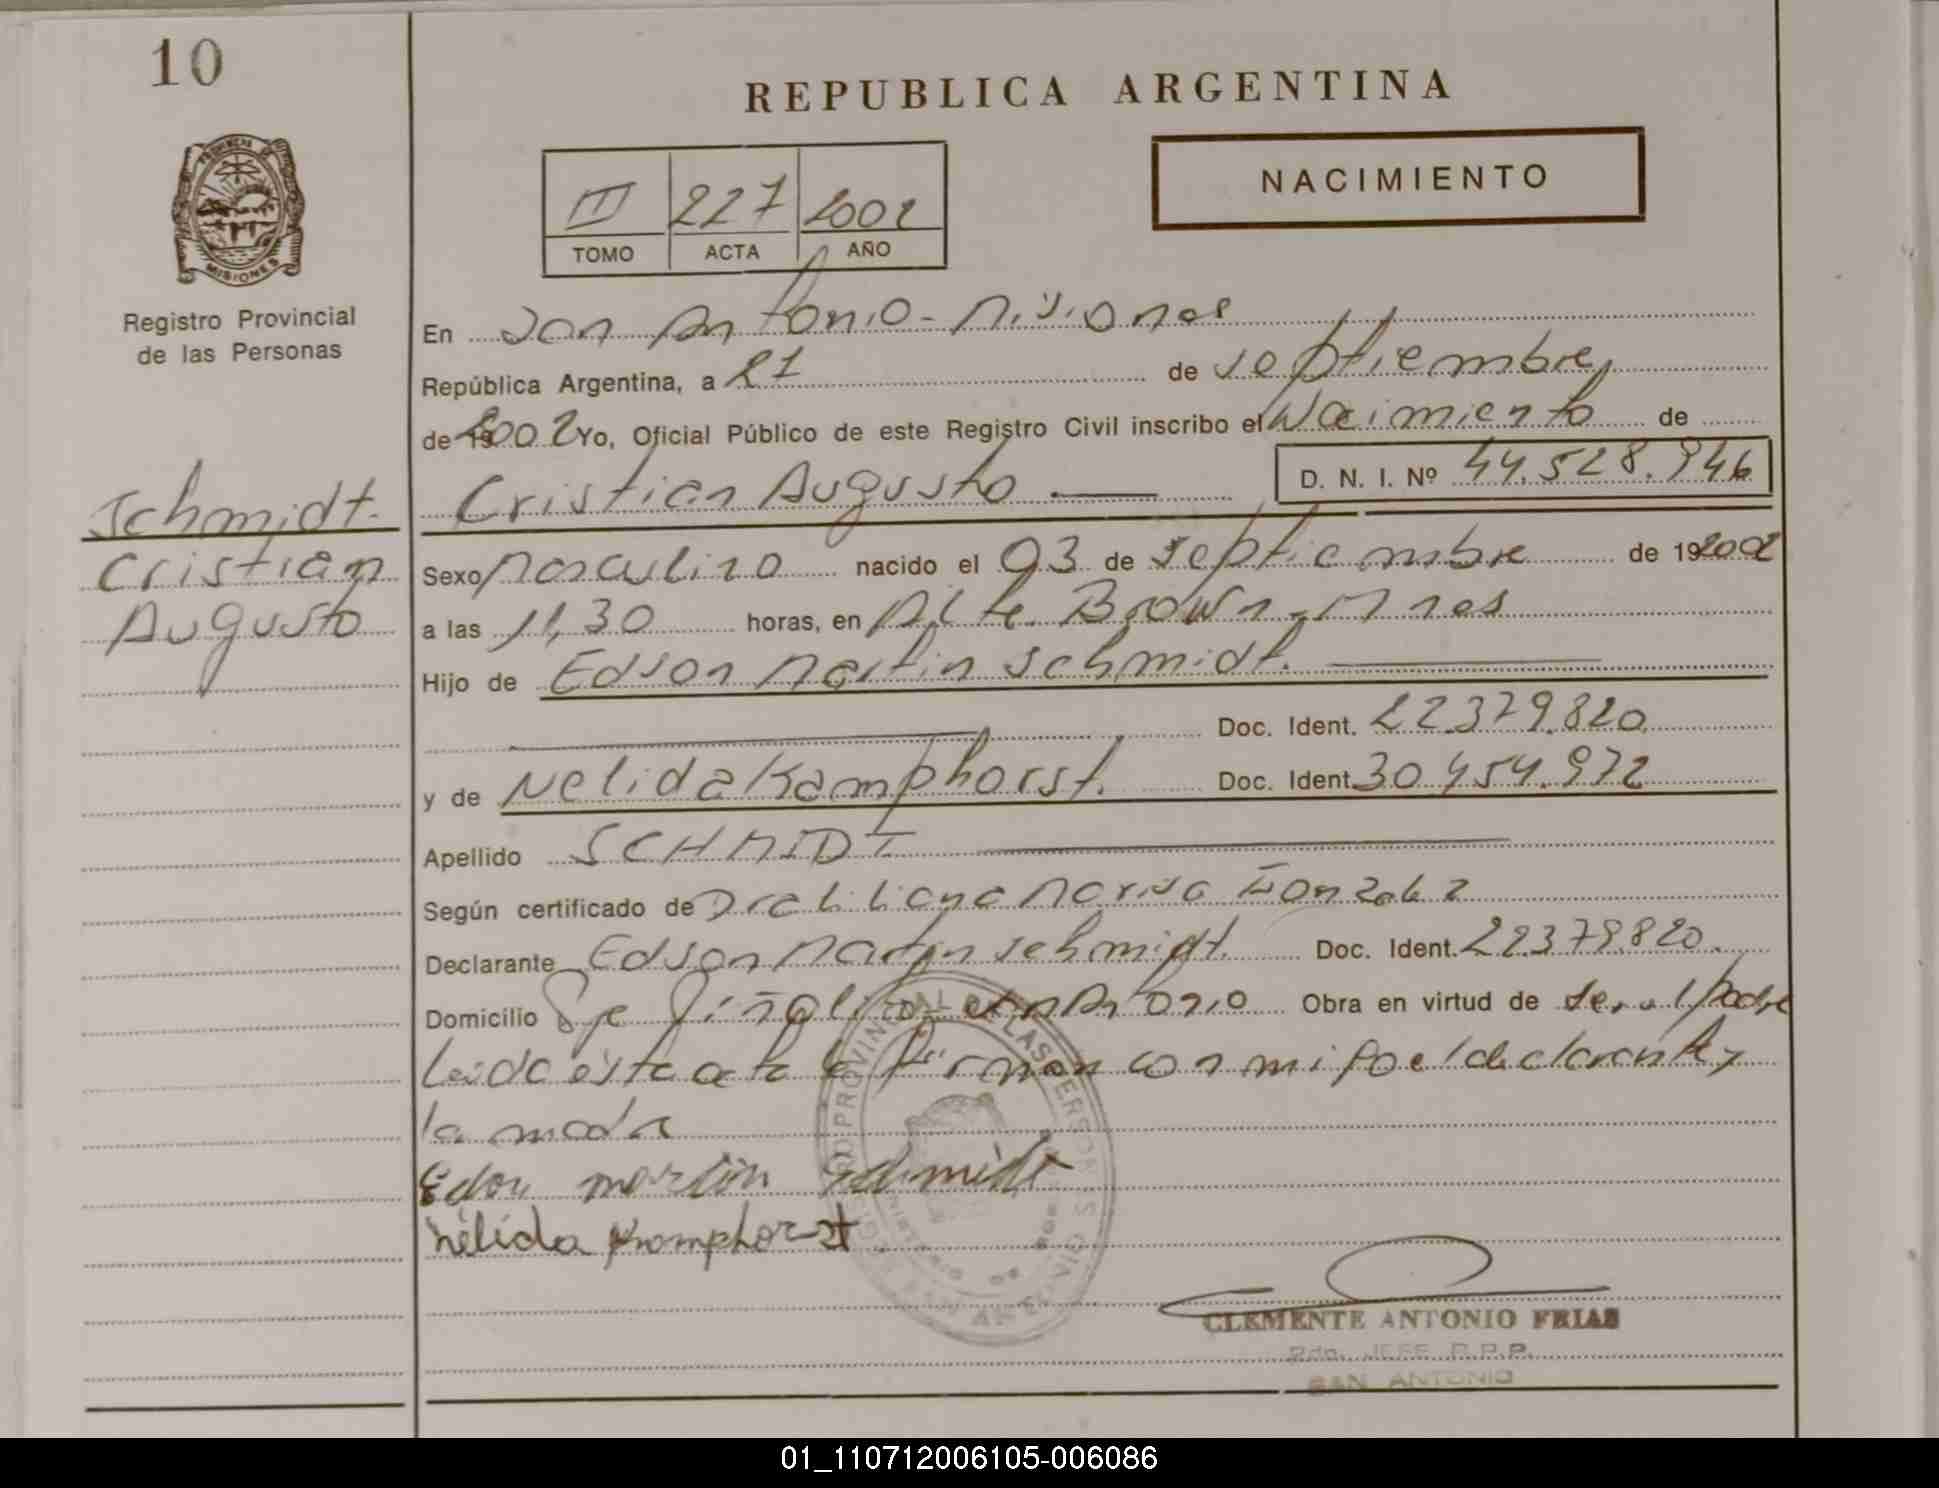 10
REPUBLICA ARGENTINA
NACIMIENTO
III 227 2002
TOMO ACTA AÑO
MISIONES
Registro Provincial
de las Personas
Schmidt.
Cristian
Augusto
En San Antonio - Misiones
República Argentina, a 21 de septiembre
de 2002 Yo, Oficial Público de este Registro Civil inscribo el Nacimiento de
Cristian Augusto. D. N. I. Nº 44.528.946
Sexo Masculino nacido el 03 de septiembre de 19 2002
a las 11,30 horas, en Alte. Brown - Mnes
Hijo de Edson Martin Schmidt.
Doc. Ident. 22.379.820
y de Nelida Kamphorst. Doc. Ident. 30.454.972
Apellido SCHMIDT
Según certificado de Dra Liliana Marisa Gonzalez
Declarante Edson Martin Schmidt. Doc. Ident. 22.379.820.
Domicilio Pje Piñalito San Antonio Obra en virtud de ser el padre
Leida esta acta la firman con migo el declarante y
la madre
Edson martin Schmidt
nélida Kamphorst
CLEMENTE ANTONIO FRIAS
JEFE R.P.P.
SAN ANTONIO
01_110712006105-006086